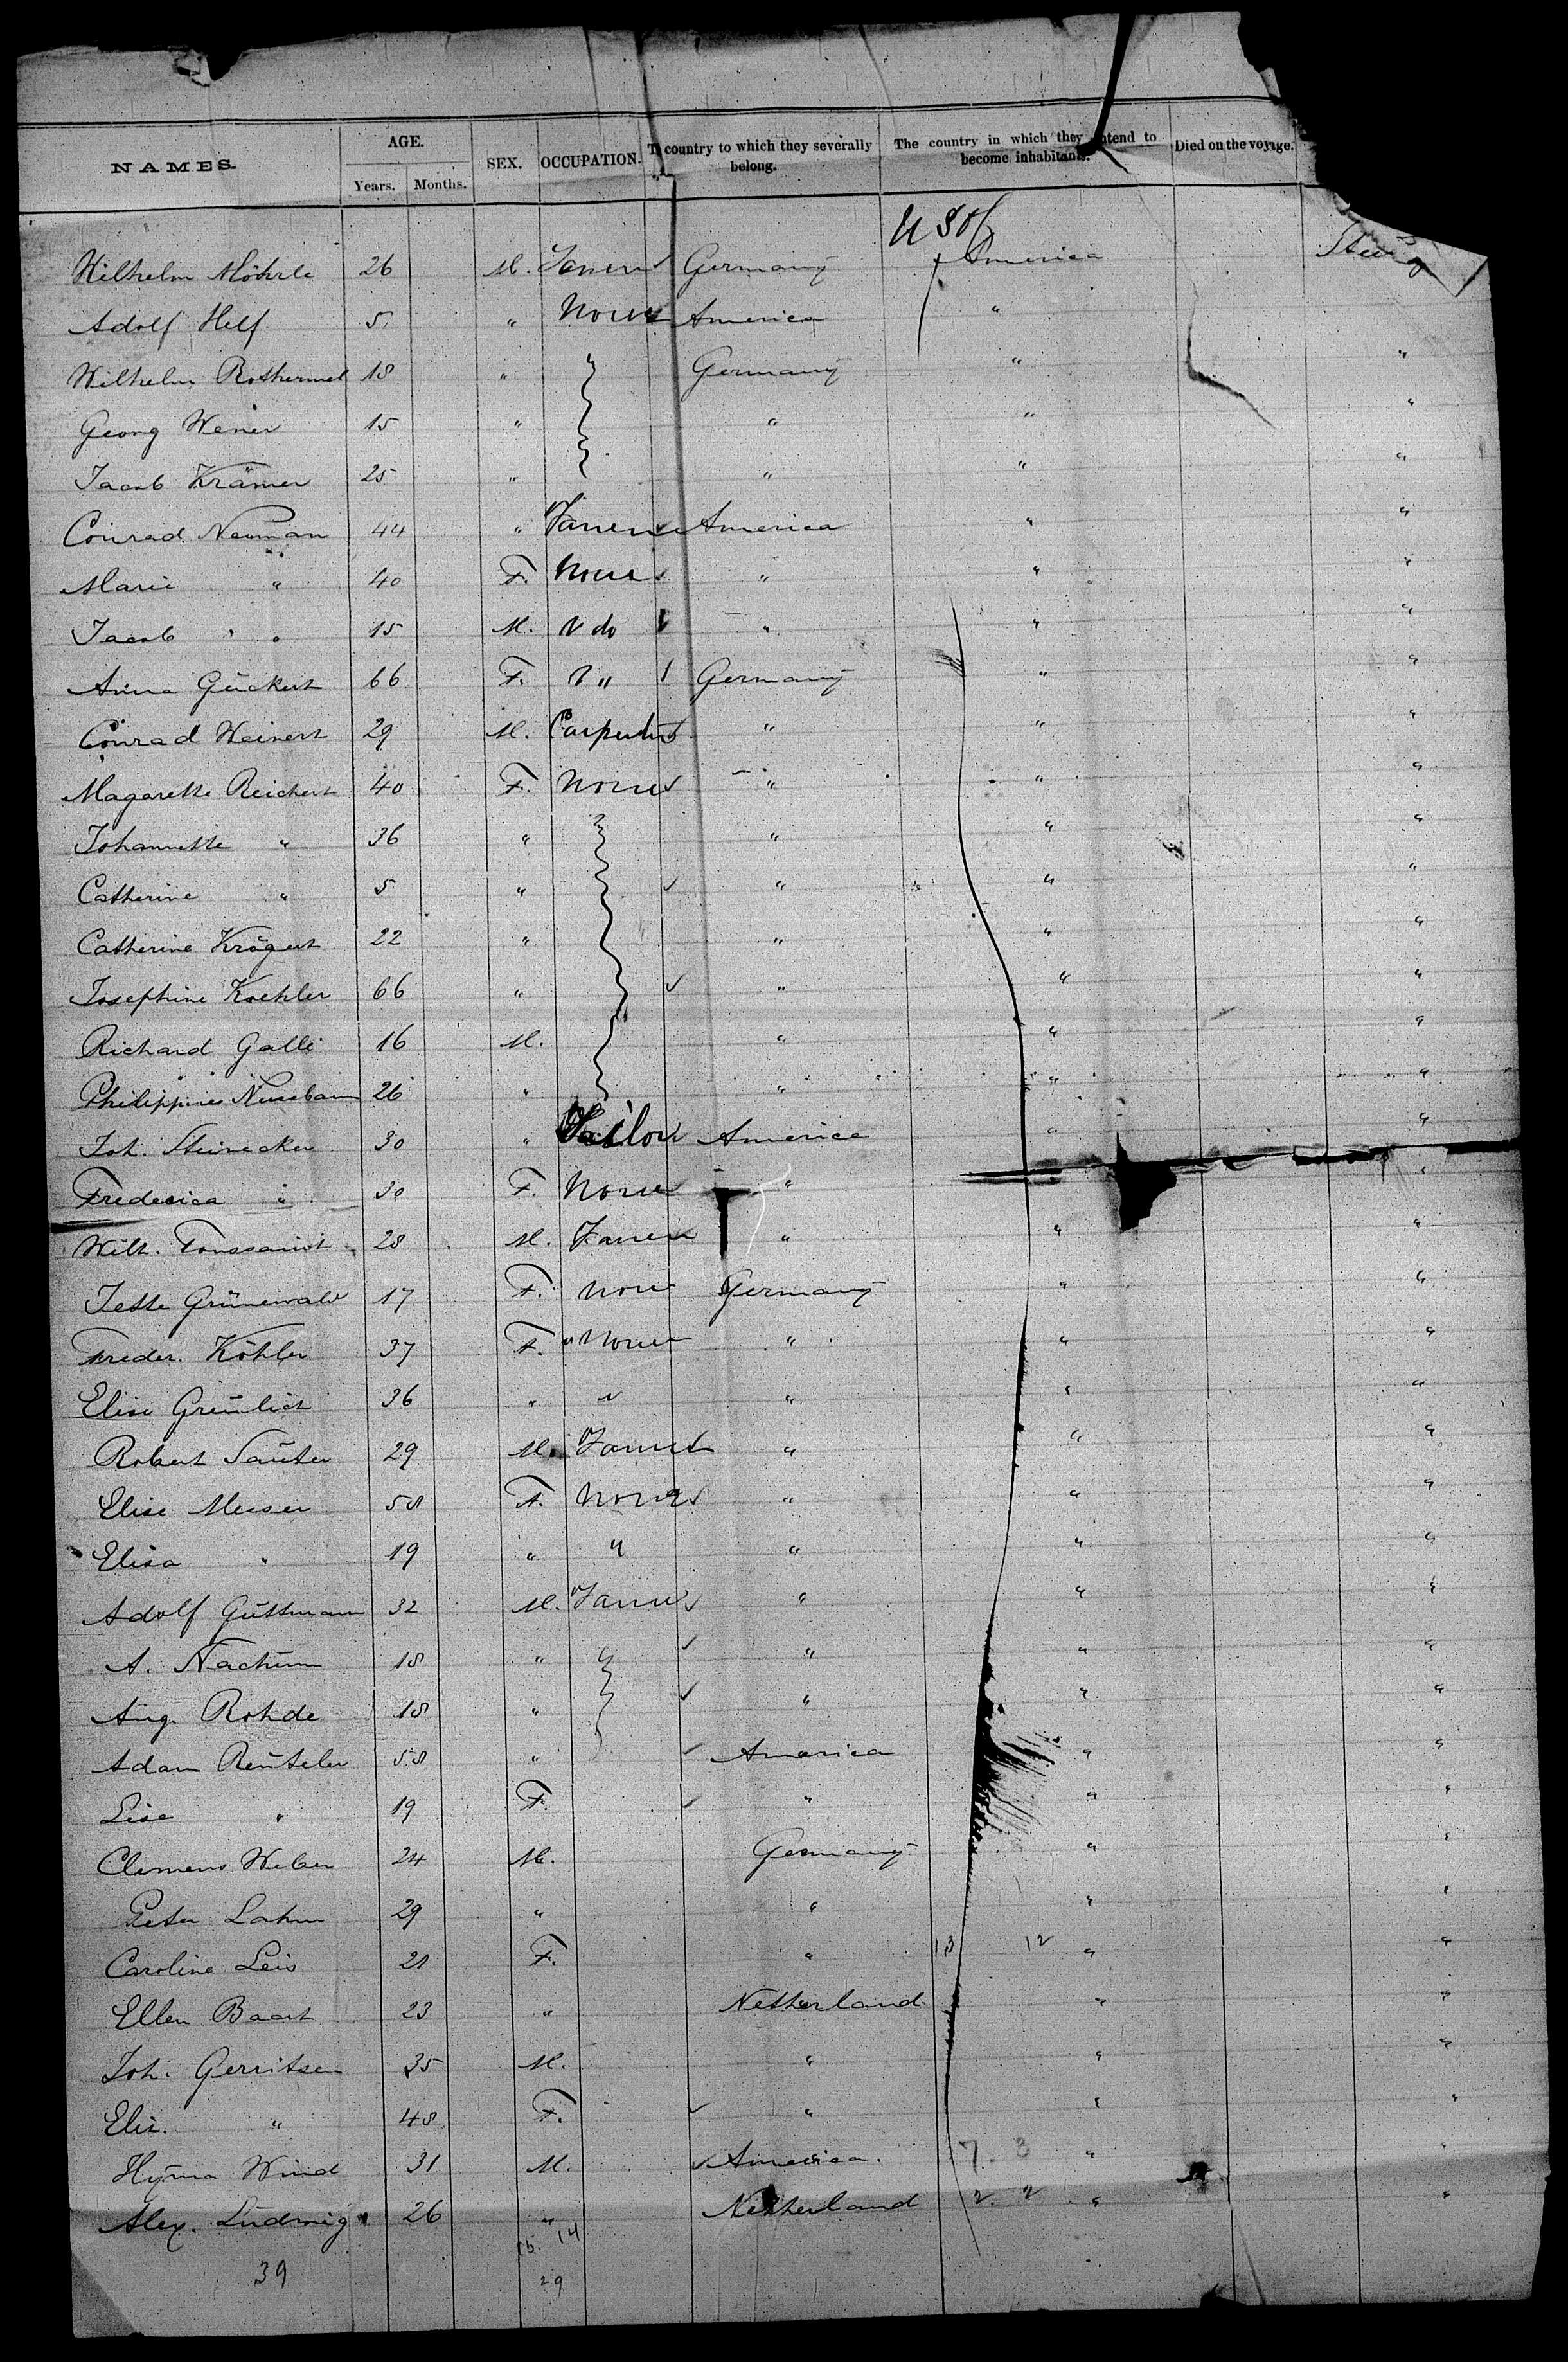 NAMES. AGE. Years. Months. SEX. OCCUPATION. country to which they severally belong. The country in which they intend to become inhabitants. Died on the voyage.
U S of
Wilhelm Möhrle 26 M. Germany America
Adolf Helf 5 " None America "
Wilhelm Rothermel 18 " Germany " "
Georg Wener 15 " " " "
Jacob Krämer 25 " " " "
Conrad Neuman 44 " Farmer America " "
Marie " 40 F. None " " "
Jacob " 15 M. do " " "
Anna Gückert 66 F. " Germany " "
Conrad Weinert 29 M. Carpenter " " "
Magarethe Reichert 40 F. None " " "
Johannette " 36 " " " "
Catherine " 5 " " " "
Catherine Krögert 22 " " " "
Josephine Koehler 66 " " " "
Richard Galli 16 M. " " "
Philippine Nussbaum 26 " " " "
Joh. Steinecker 30 " Tailor America " "
Frederica " 30 F. None " " "
Wilh. Toussaint 28 M. Farmer " " "
Jette Grünewald 17 F. None Germany " "
Freder. Köhler 37 F. None " " "
Elise Greülich 36 " " " " "
Robert Saüter 29 M. Farmer " " "
Elise Meeser 58 F. None " " "
Elisa " 19 " " " " "
Adolf Güttmann 32 M. Farmer " " "
A. Nachüm 18 " " " "
Aug. Rohde 18 " " " "
Adam Reuteler 58 " America " "
Lise " 19 F. " " "
Clemens Weber 24 M. Germany " "
Peter Lahm 29 " " " "
Caroline Leis 21 F. " 13 12 " "
Ellen Baart 23 " Netherland " "
Joh. Gerritsen 35 M. " " "
Elis. " 48 F. " " "
Hyma Wind 31 M. America. 7. 3 " "
Alex. Lüdwig 26 " Netherland 2. 2 " "
15. 14
39 29